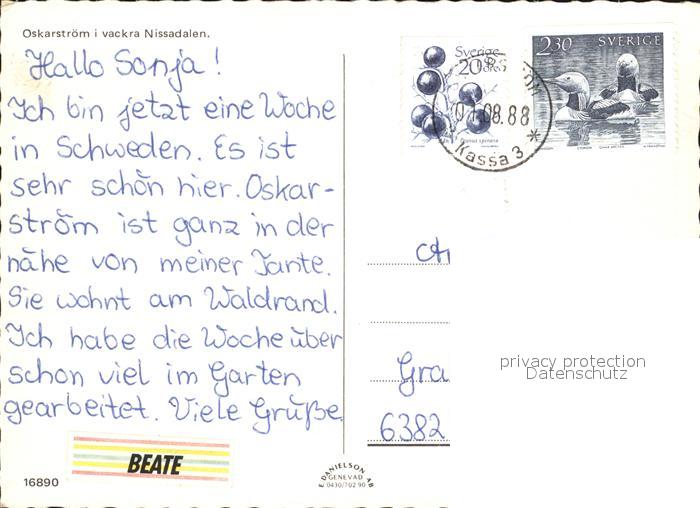 Oskarström i vackra Nissadalen.
Hallo Sonja!
Ich bin jetzt eine Woche
in Schweden. Es ist
sehr schön hier. Oskar-
ström ist ganz in der
nähe von meiner Tante.
Sie wohnt am Waldrand.
Ich habe die Woche über
schon viel im Garten
gearbeitet. Viele Grüße
BEATE
16890
E. DANIELSON AB
GENEVAD
0430/702 90
Sverige
20 öre
Prunus spinosa
2.30 SVERIGE
08.88
Kassa 3 *
An
Gra
6382
privacy protection
Datenschutz